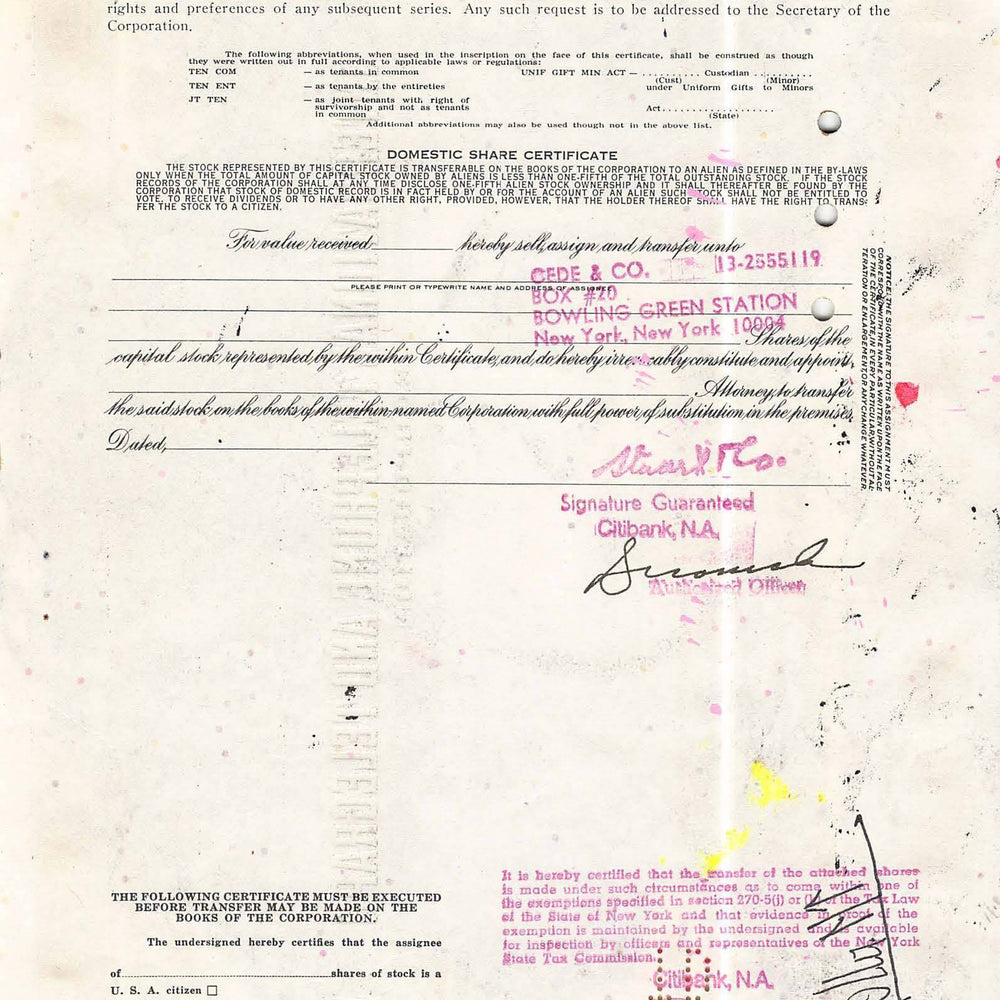 rights and preferences of any subsequent series. Any such request is to be addressed to the Secretary of the
Corporation.
The following abbreviations, when used in the inscription on the face of this certificate, shall be construed as though
they were written out in full according to applicable laws or regulations:
TEN COM — as tenants in common
TEN ENT — as tenants by the entireties
JT TEN — as joint tenants with right of
survivorship and not as tenants
in common
UNIF GIFT MIN ACT — .......... Custodian ..........
(Cust) (Minor)
under Uniform Gifts to Minors
Act....................
(State)
Additional abbreviations may also be used though not in the above list.
DOMESTIC SHARE CERTIFICATE
THE STOCK REPRESENTED BY THIS CERTIFICATE IS TRANSFERABLE ON THE BOOKS OF THE CORPORATION TO AN ALIEN AS DEFINED IN THE BY-LAWS
ONLY WHEN THE TOTAL AMOUNT OF CAPITAL STOCK OWNED BY ALIENS IS LESS THAN ONE-FIFTH OF THE TOTAL OUTSTANDING STOCK. IF THE STOCK
RECORDS OF THE CORPORATION SHALL AT ANY TIME DISCLOSE ONE-FIFTH ALIEN STOCK OWNERSHIP AND IT SHALL THEREAFTER BE FOUND BY THE
CORPORATION THAT STOCK OF DOMESTIC RECORD IS IN FACT HELD BY OR FOR THE ACCOUNT OF AN ALIEN SUCH STOCK SHALL NOT BE ENTITLED TO
VOTE, TO RECEIVE DIVIDENDS OR TO HAVE ANY OTHER RIGHT, PROVIDED, HOWEVER, THAT THE HOLDER THEREOF SHALL HAVE THE RIGHT TO TRANS-
FER THE STOCK TO A CITIZEN.
For value received hereby sell, assign and transfer unto
CEDE & CO. 13-2555119
PLEASE PRINT OR TYPEWRITE NAME AND ADDRESS OF ASSIGNEE
BOX #20
BOWLING GREEN STATION
New York, New York 10004
Shares of the
capital stock represented by the within Certificate, and do hereby irrevocably constitute and appoint,
Attorney, to transfer
the said stock on the books of the within named Corporation with full power of substitution in the premises.
Dated,
NOTICE: THE SIGNATURE TO THIS ASSIGNMENT MUST
CORRESPOND WITH THE NAME AS WRITTEN UPON THE FACE
OF THE CERTIFICATE, IN EVERY PARTICULAR, WITHOUT AL-
TERATION OR ENLARGEMENT, OR ANY CHANGE WHATEVER.
Signature Guaranteed
Citibank, N.A.
Authorized Officer
THE FOLLOWING CERTIFICATE MUST BE EXECUTED
BEFORE TRANSFER MAY BE MADE ON THE
BOOKS OF THE CORPORATION.
The undersigned hereby certifies that the assignee
of shares of stock is a
U. S. A. citizen ☐
It is hereby certified that the transfer of the attached shares
is made under such circumstances as to come within one of
the exemptions specified in section 270-5(i) or of the Tax Law
of the State of New York and that evidence in proof of the
exemption is maintained by the undersigned and is available
for inspection by officers and representatives of the New York
State Tax Commission.
Citibank, N.A.